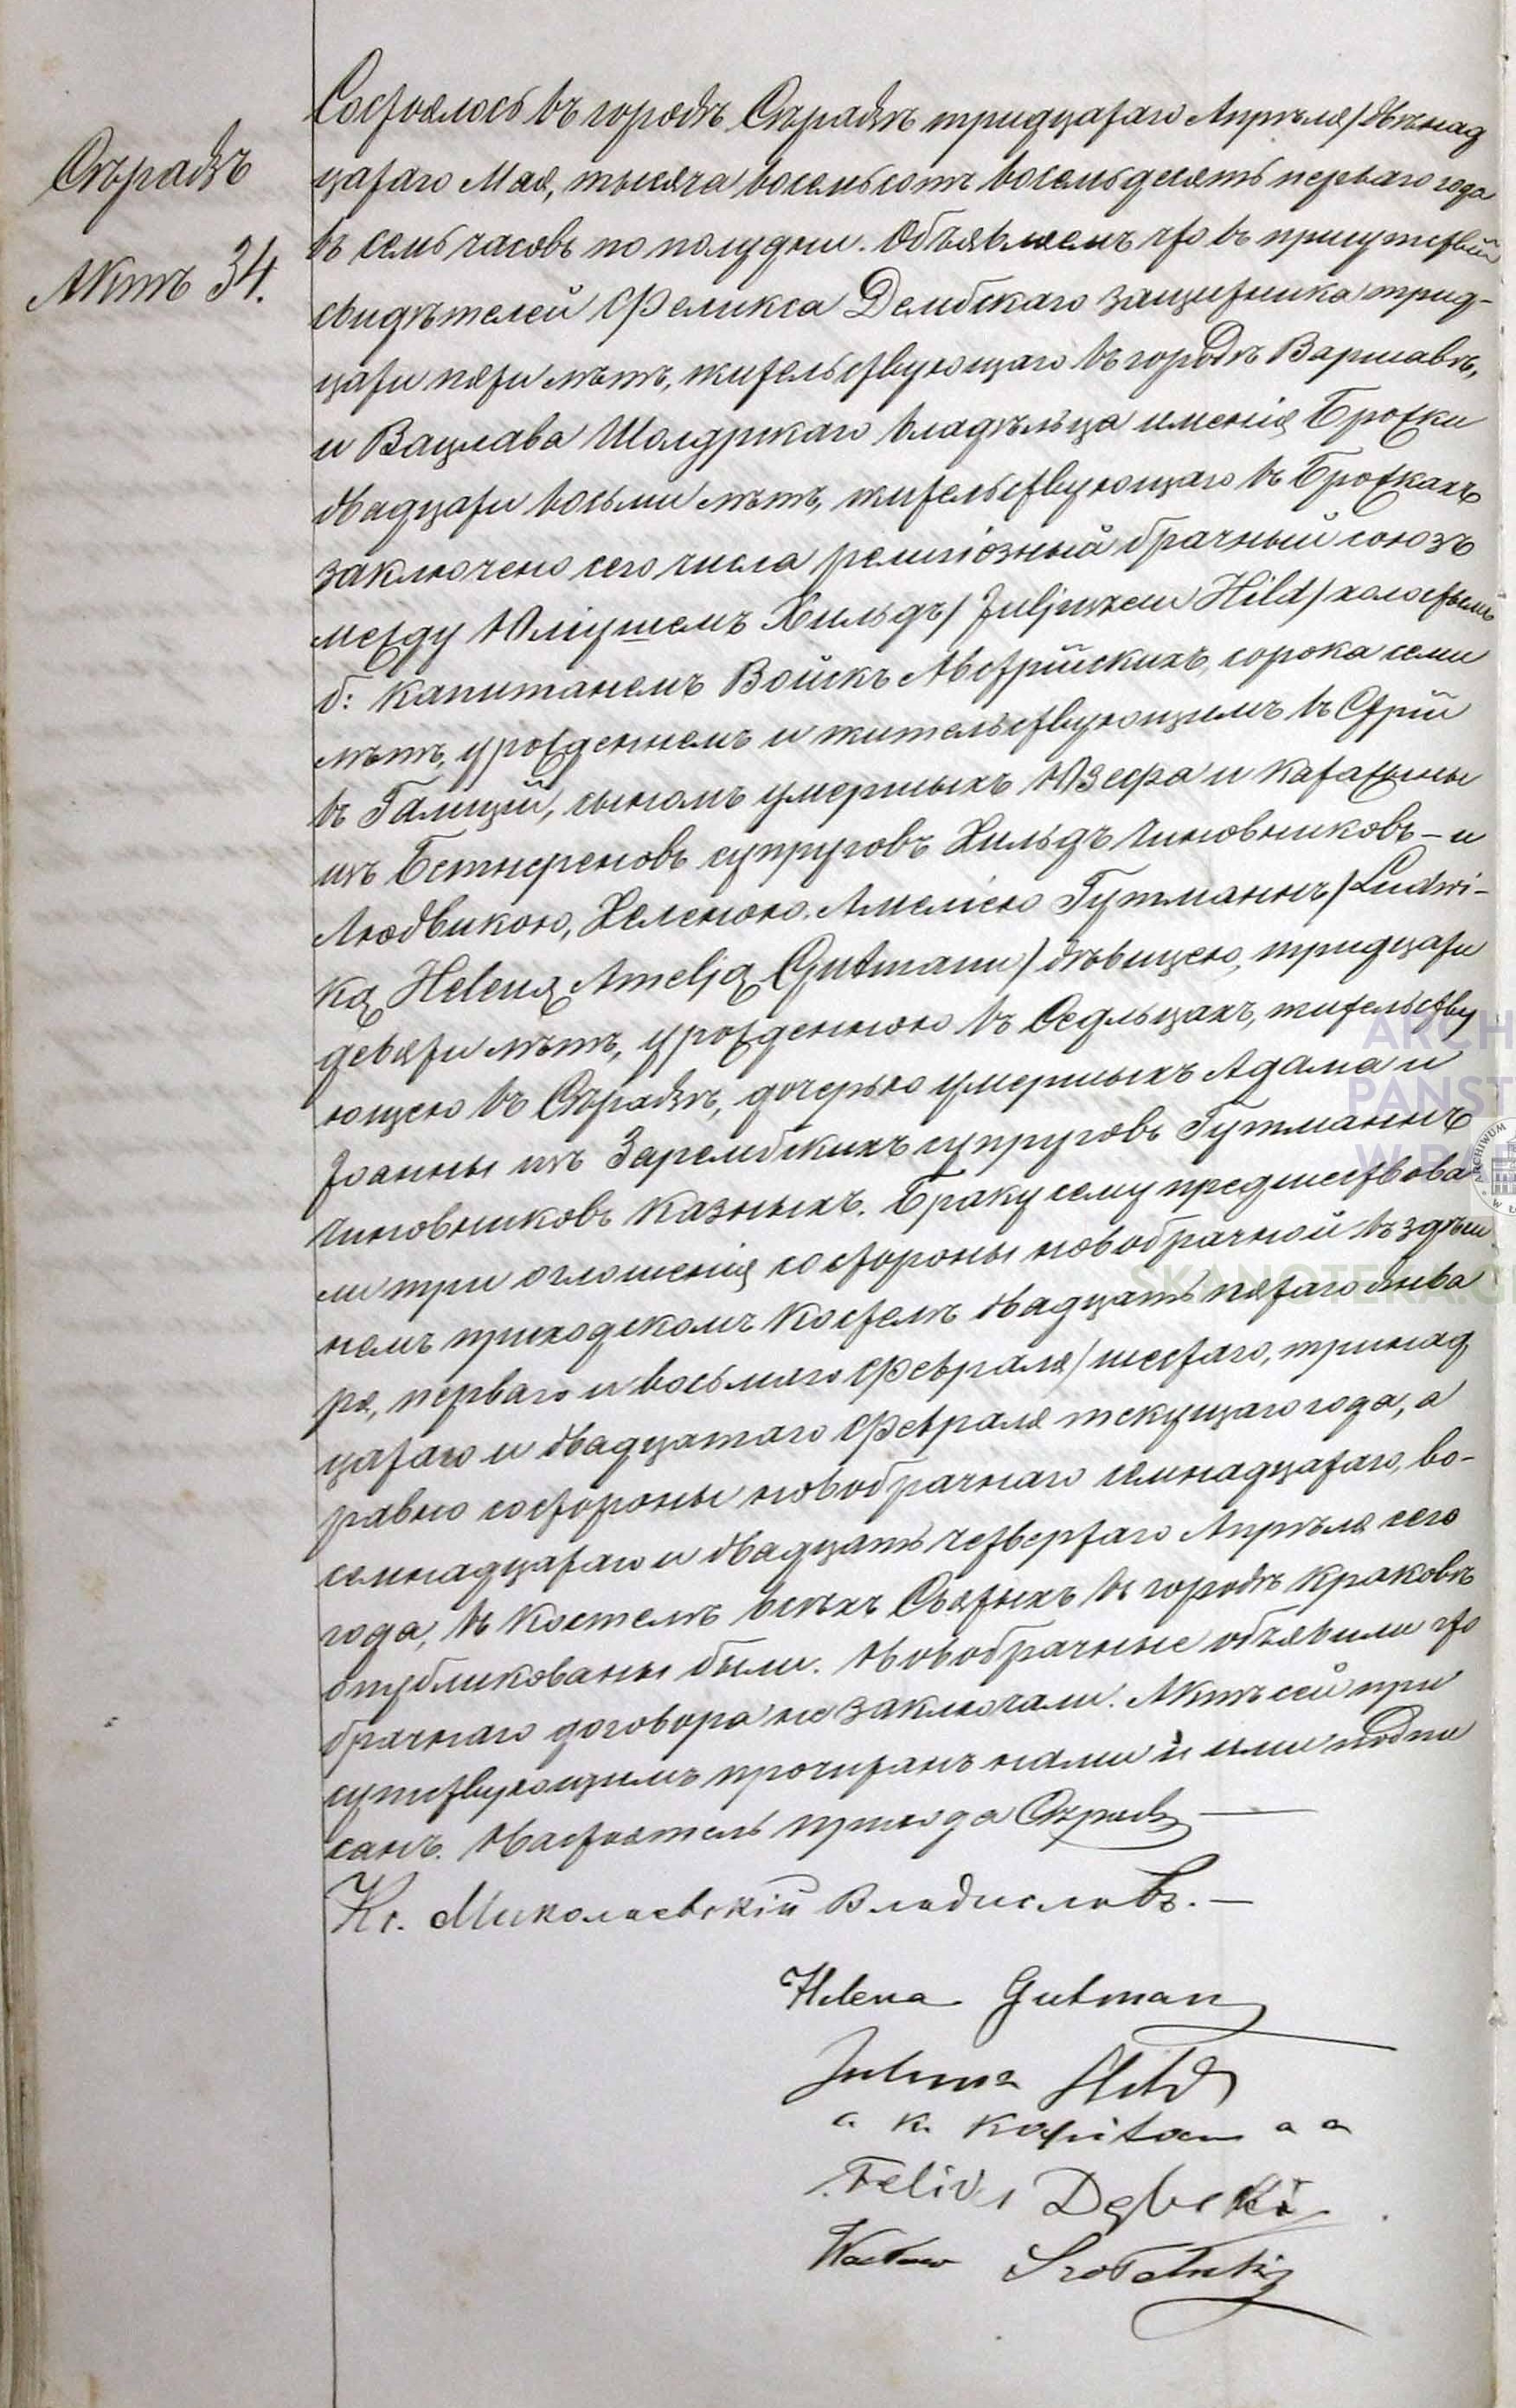 Сѣрадзъ
Актъ 34.
Состоялось въ городѣ Сѣрадзѣ тридцатаго Апрѣля/двѣнад
цатаго Мая, тысяча восемьсотъ восемьдесятъ перваго года
въ семь часовъ по полудни. Объявляемъ что въ присутствіи
свидѣтелей Феликса Дембскаго защитника трид-
цати пяти лѣтъ, жительствующаго въ городѣ Варшавѣ,
и Вацлава Шолдрскаго владѣльца именія Брожки
двадцати восьми лѣтъ, жительствующаго въ Брожкахъ
заключено сего числа религіозный брачный союзъ
между Юліушемъ Хильдъ/Juljuszem Hild/холостымъ
б: капитанемъ Войскъ Австрійскихъ, сорока семи
лѣтъ, урожденнемъ и жительствующимъ въ Стрій
въ Галиціи, сыномъ умершыхъ Юзефа и Катажыны
изъ Бетнереновъ супруговъ Хильдъ чиновниковъ - и
Людвикою, Хеленою Амеліею Гутманнъ/Ludwi-
ką Heleną Amelją Gutmann/дѣвицею, тридцати
девяти лѣтъ, урожденною въ Седльцахъ, жительству
ющею въ Сѣрадзѣ, дочерью умершыхъ Адама и
Іоанны изъ Зарембскихъ супруговъ Гутманнъ
чиновниковъ казныхъ. Браку сему предшествова
ли три оглошенія со стороны новобрачной въ здѣш
немъ приходскомъ костелѣ двадцать пятаго Янва
ря, перваго и восьмаго Февраля/шестаго, тринад
цатаго и двадцатаго Февраля текущаго года, а
равно со стороны новобрачнаго семнадцатаго, во-
семнадцатаго и двадцать четвертаго Апрѣля сего
года, въ костелѣ всѣхъ Святыхъ въ городѣ Краковѣ
опубликованы были. Новобрачные объявили что
брачнаго договора не заключали. Актъ сей при
сутствующимъ прочитанъ нами и ими подпи
санъ. Настоятель прихода Сѣрадзъ —
Кс. Миколаевскій Владиславъ. —
Helena Gutman
Juliusz Hild
c. k. Kapitan a a
Felix Dębski
Wacław Szołdrski